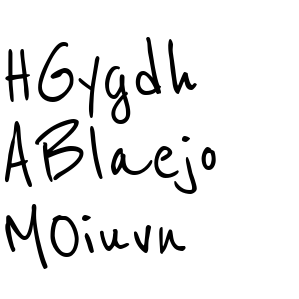 HGygdh
ABlaejo
MOiuvn